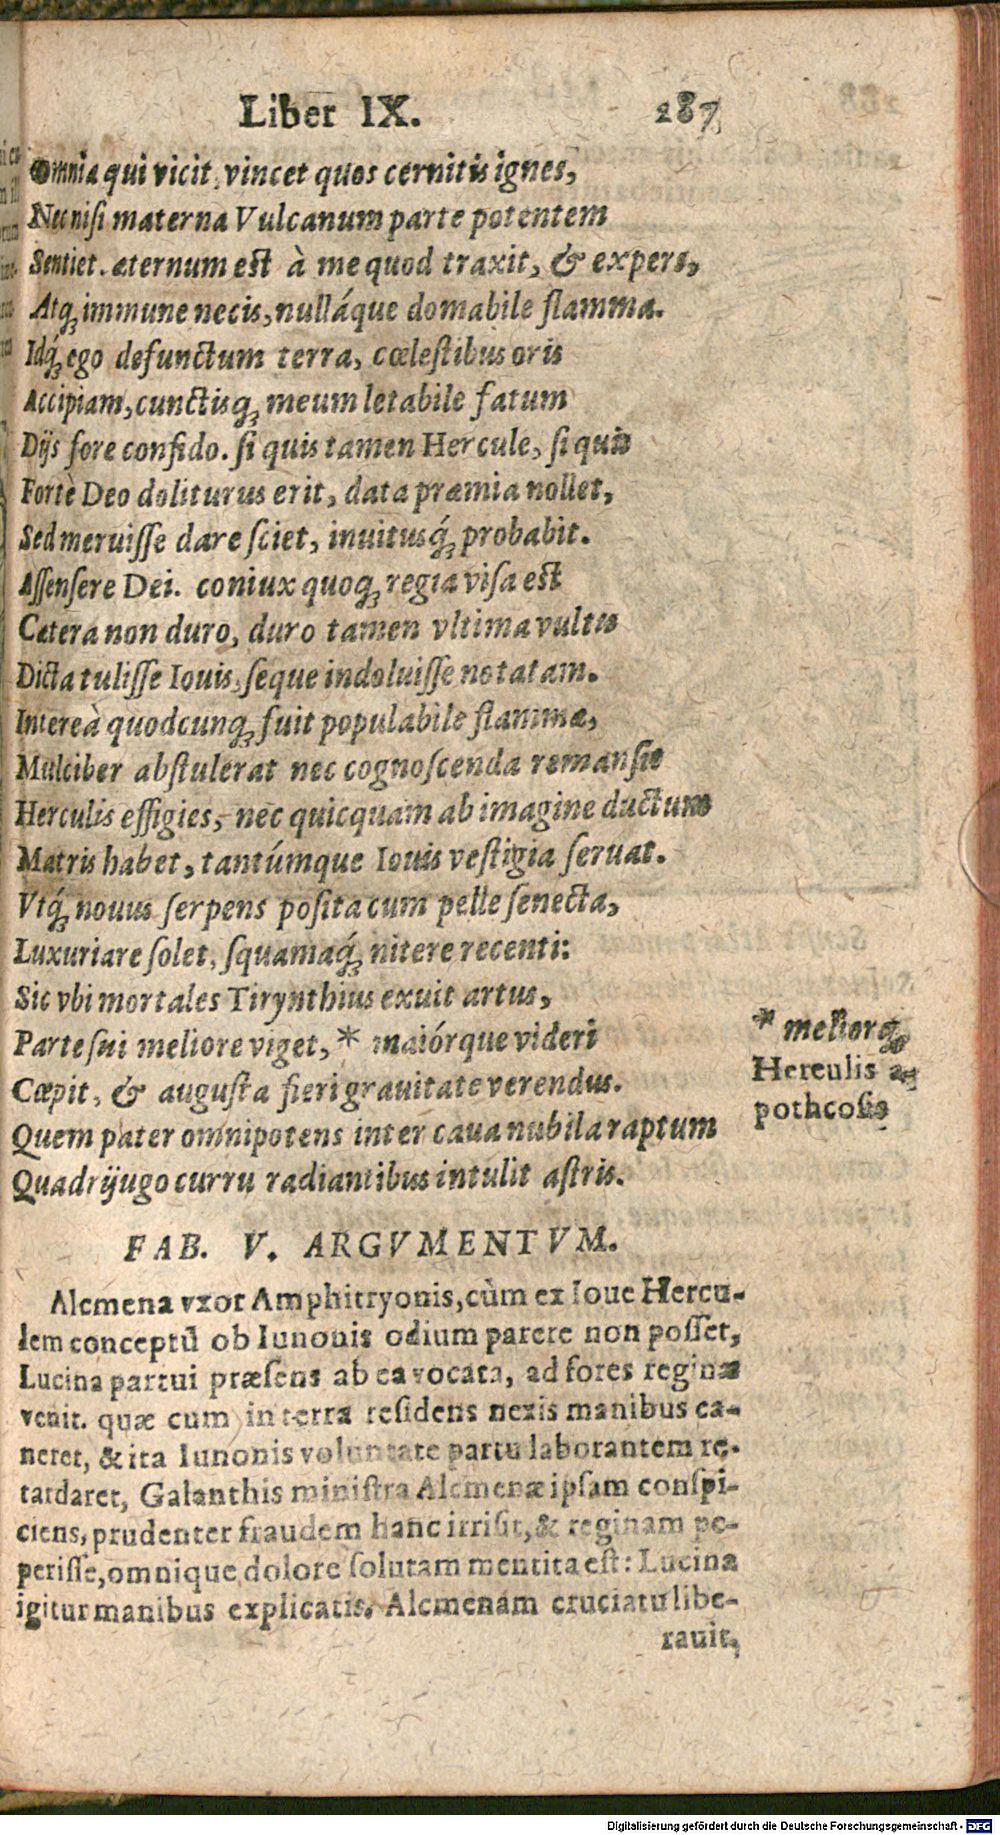 Liber IX. 287
Omnia qui vicit, vincet quos cernitis ignes,
Nec nisi materna Vulcanum parte potentem
Sentiet. æternum est à me quod traxit, & expers,
Atq́; immune necis, nulláque domabile flamma.
Idq́; ego defunctum terra, cœlestibus oris
Accipiam, cunctisq; meum letabile factum
Dijs fore confido. si quis tamen Hercule, si quis
Fortè Deo doliturus erit, data præmia nollet,
Sed meruisse dare sciet, inuitusq́; probabit.
Assensere Dei. coniux quoq; regia visa est
Cætera non duro, duro tamen vltima vultu
Dicta tulisse Iouis, seque indoluisse notatam.
Intereà quodcunq; fuit populabile flammæ,
Mulciber abstulerat nec cognoscenda remansit
Herculis effigies, nec quicquam ab imagine ductum
Matris habet, tantúmque Iouis vestigia seruat.
Vtq́; nouus serpens posita cum pelle senecta,
Luxuriare solet, squamaq́; nitere recenti:
Sic vbi mortales Tirynthius exuit artus,
Parte sui meliore viget, * maiórque videri
Cœpit, & augusta fieri grauitate verendus.
Quem pater omnipotens inter caua nubila raptum
Quadrijugo curru radiantibus intulit astris.
* meliorq;
Herculis a-
potheosis
FAB. V. ARGVMENTVM.
Alcmena vxor Amphitryonis, cùm ex Ioue Hercu-
lem conceptũ ob Iunonis odium parere non posset,
Lucina partui præsens ab ea vocata, ad fores reginæ
venit. quæ cum in terra residens nexis manibus ca-
neret, & ita Iunonis voluntate partu laborantem re-
tardaret, Galanthis ministra Alcmenæ ipsam conspi-
ciens, prudenter fraudem hanc irrisit, & reginam pe-
perisse, omnique dolore solutam mentita est: Lucina
igitur manibus explicatis, Alcmenam cruciatu libe-
rauit,
Digitalisierung gefördert durch die Deutsche Forschungsgemeinschaft - DFG